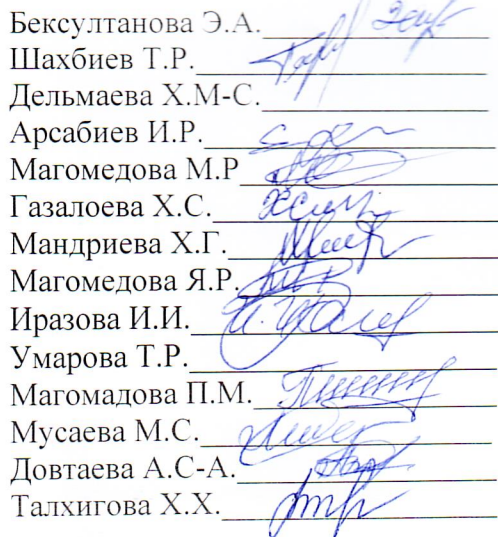 Бексултанова Э.А.
Шахбиев Т.Р.
Дельмаева Х.М-С.
Арсабиев И.Р.
Магомедова М.Р
Газалоева Х.С.
Мандриева Х.Г.
Магомедова Я.Р.
Иразова И.И.
Умарова Т.Р.
Магомадова П.М.
Мусаева М.С.
Довтаева А.С-А.
Талхигова Х.Х.